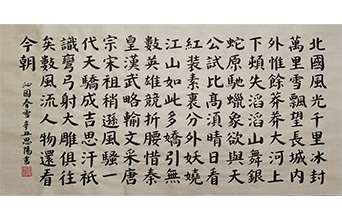 北國風光千里冰封
萬里雪飄望長城内
外惟餘莽莽大河上
下頓失滔滔山舞銀
蛇原馳蠟象欲與天
公試比高須晴日看
紅装素裹分外妖嬈
江山如此多嬌引無
數英雄競折腰惜秦
皇漢武略輸文采唐
宗宋祖稍遜風騷一
代天驕成吉思汗衹
識彎弓射大雕俱往
矣數風流人物還看
今朝
沁園春雪辛丑思陽書